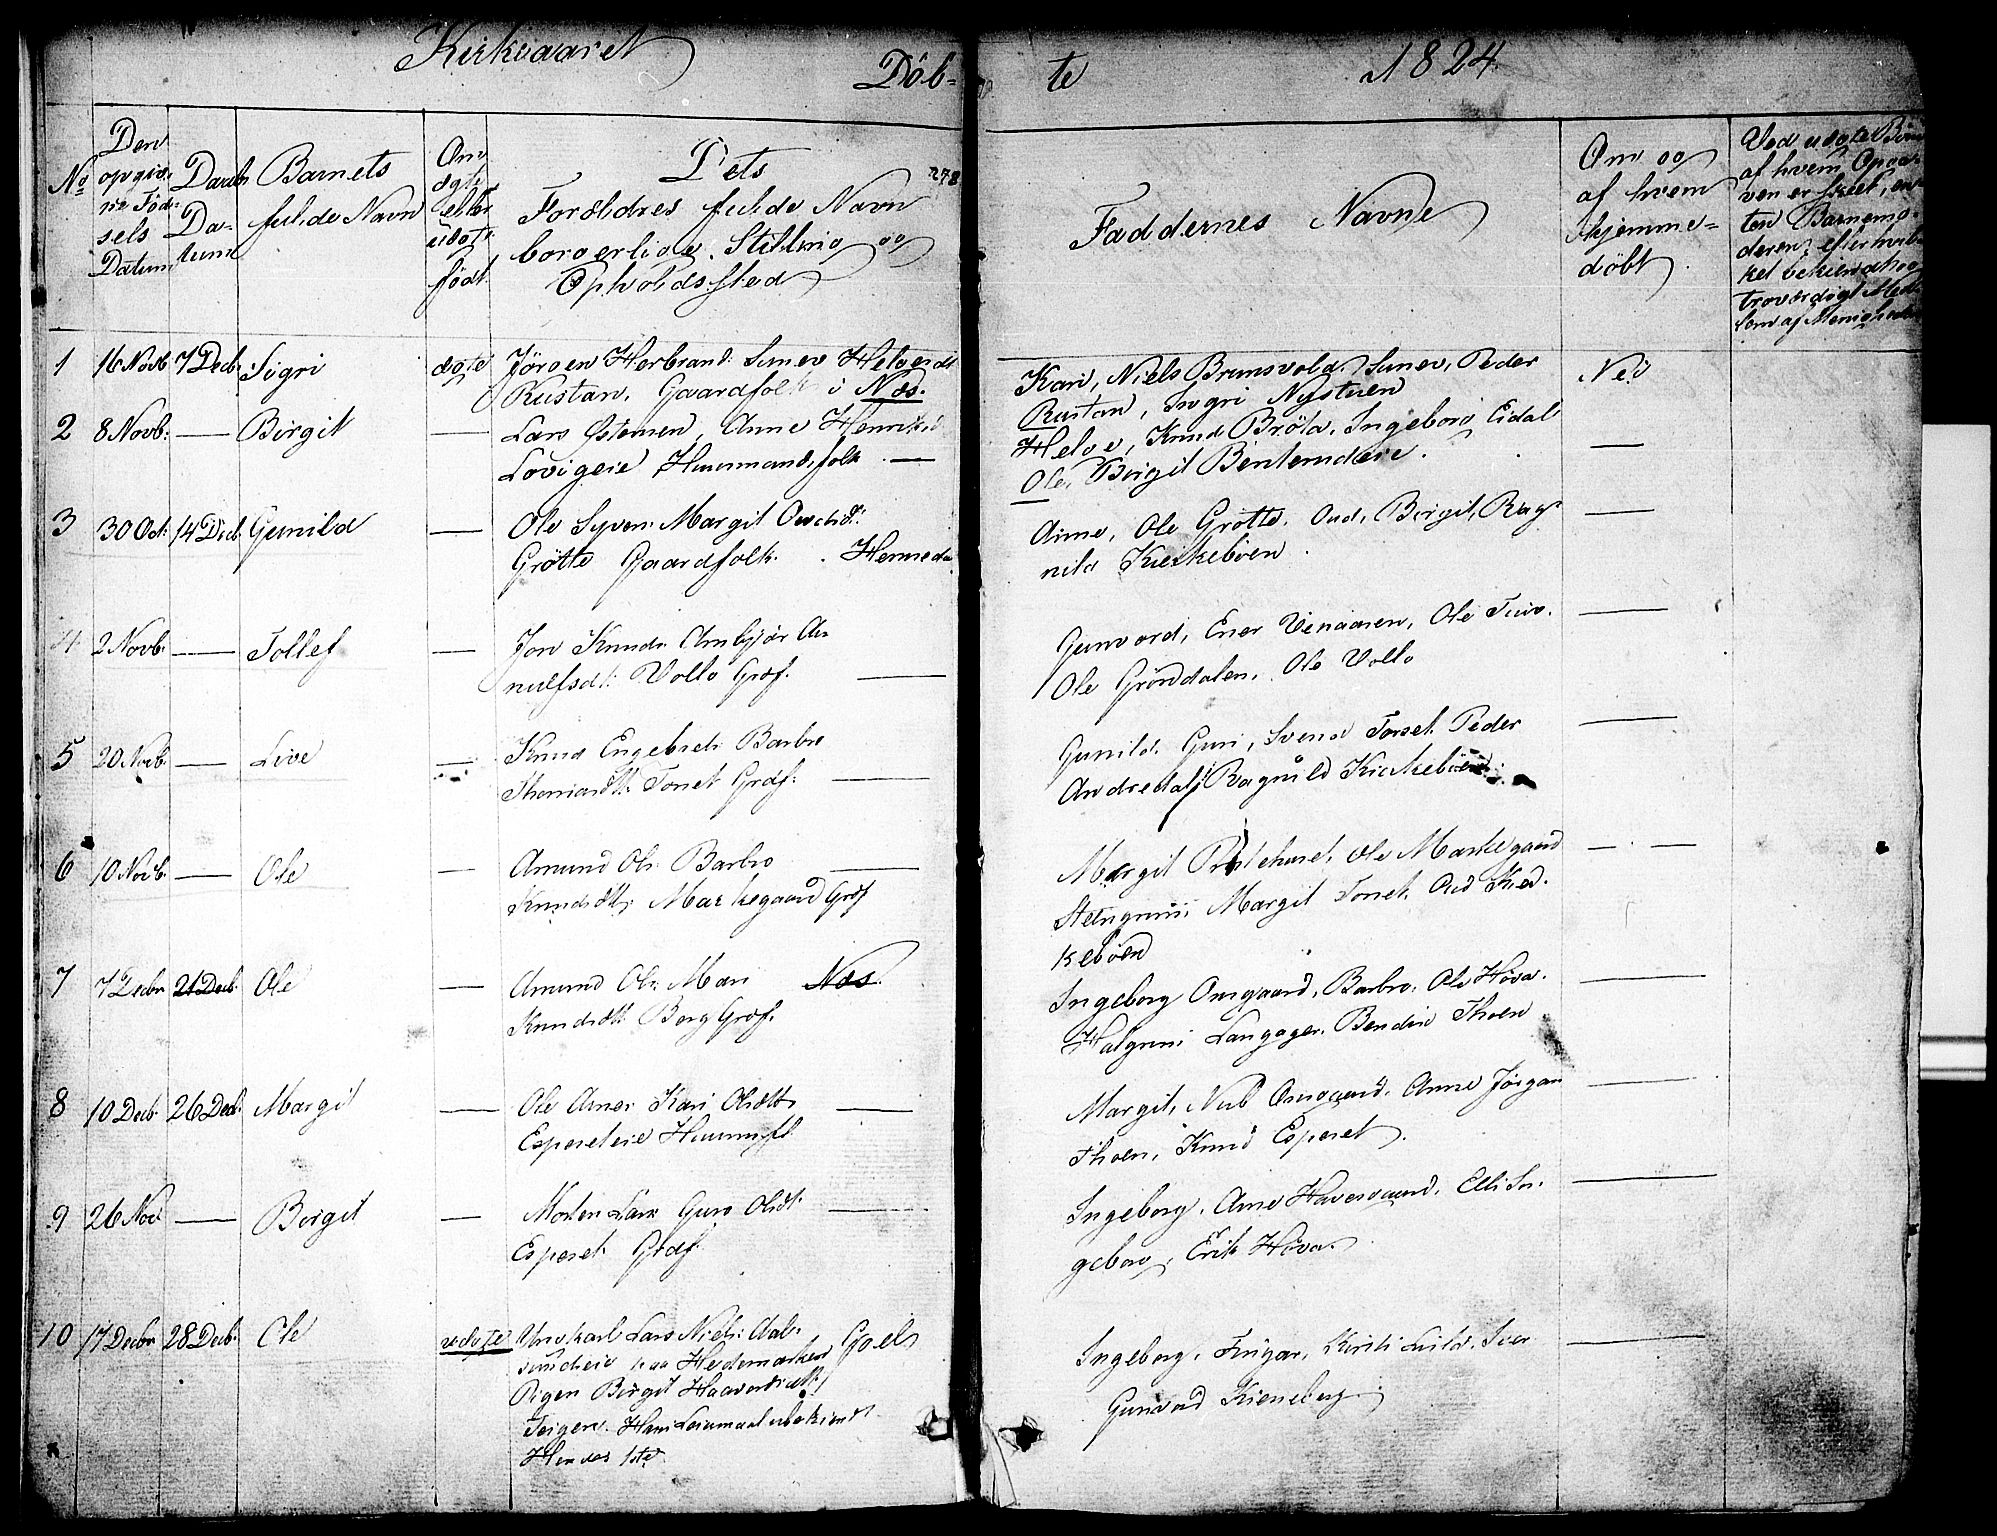 Kirkeaaret
Döb-
te
1824
No
Den
opgiv-
ne Föd-
sels
Datum
Daabs
Da-
tum
Barnets
fulde Navn
Om
ægte
eller
uægte
födt
Dets
278
Forældres fulde Navn
borgerlige Stilling og
Opholdssted
Faddernes Navne
Om og
af hvem
hjemme-
döbt
Ved uægte Börn
af hvem Opga-
ven er skeet, en-
ten Barnemo-
deren, eller
troværdigt Med-
lem af Menigheden
1 16 Novb 7 Decb: Sigri ægte Jörgen Herbrand: Helgesdt
Rustan, Gaardfolk i Næs.
Kari, Niels Brunsvold, Peder
Rustan, Ingri Nystuen
Nei
2 8 Novb: — Birgit — Lars Ostensen, Anne Henriksd
Lovigeie Huusmandsfolk —
Helge, Knud Bröta, Ingeborg Eidal
Ole, Birgit Bentemdere. —
3 30 Oct: 14 Decb: Gunild — Ole Syvers: Margit
Grötte Gaardfolk. Hemsedal
Anne, Ole Grötte, Aud, Birgit, Rag-
nild Kirkeböen. —
4 2 Novb: — Tollef — Jon Knuds: Ambjör Ar-
nulfsdt: Vollo Grdf. —
Gunvord, Ener Venaasen, Ole Tuv.
Ole Gröndalen, Ole Vollo —
5 20 Novb: — Live — Knud Engebrets: Barbro
Thomasdtt: Torset Grdf: —
Gunild, Guri, Svend Torset, Peder
Andredal, Ragnild Kirkeböen. —
6 10 Novb: — Ole — Amund Ols: Barbro —
Knudsdtt: Markegaard Grdf
Margit Ole Markegaard
Steingrim, Margit Torset, Aud Kir-
keböen — —
7 7 Decbr 21 Decb: Ole — Amund Ols: Mari Næs.
Knudsdtt Berg Grdf.
Ingeborg Omgaard, Barbro, Ole Hova.
Halgrim Langager, Bendix Thoen —
8 10 Decb: 26 Decb: Margit — Ole Arnes: Kari Olsdtt: —
Esperseteie Huusmfl
Margit, Nub Omgaard, Anne Jörgen
Thoen, Knud Esperset. —
9 26 Nov — Birgit — Morten Lars: Guro Olsdt: —
Esperset Grdf.
Ingeborg, Arne Haversgaard, Elli In-
geborg, Erik Hova. —
10 17 Decbr 28 Decb: Ole uægte Ungkarl Lars Niels: Aal- Goels
sundeie paa Hedemarken
Pigen Birgit Haavardsdtt
Teigen. Hans Leiermaal ubekiendt
Hendes 1ste
Ingeborg, Tingar, Kirsti Liild, Iver
Gunvord Kieneberg. —